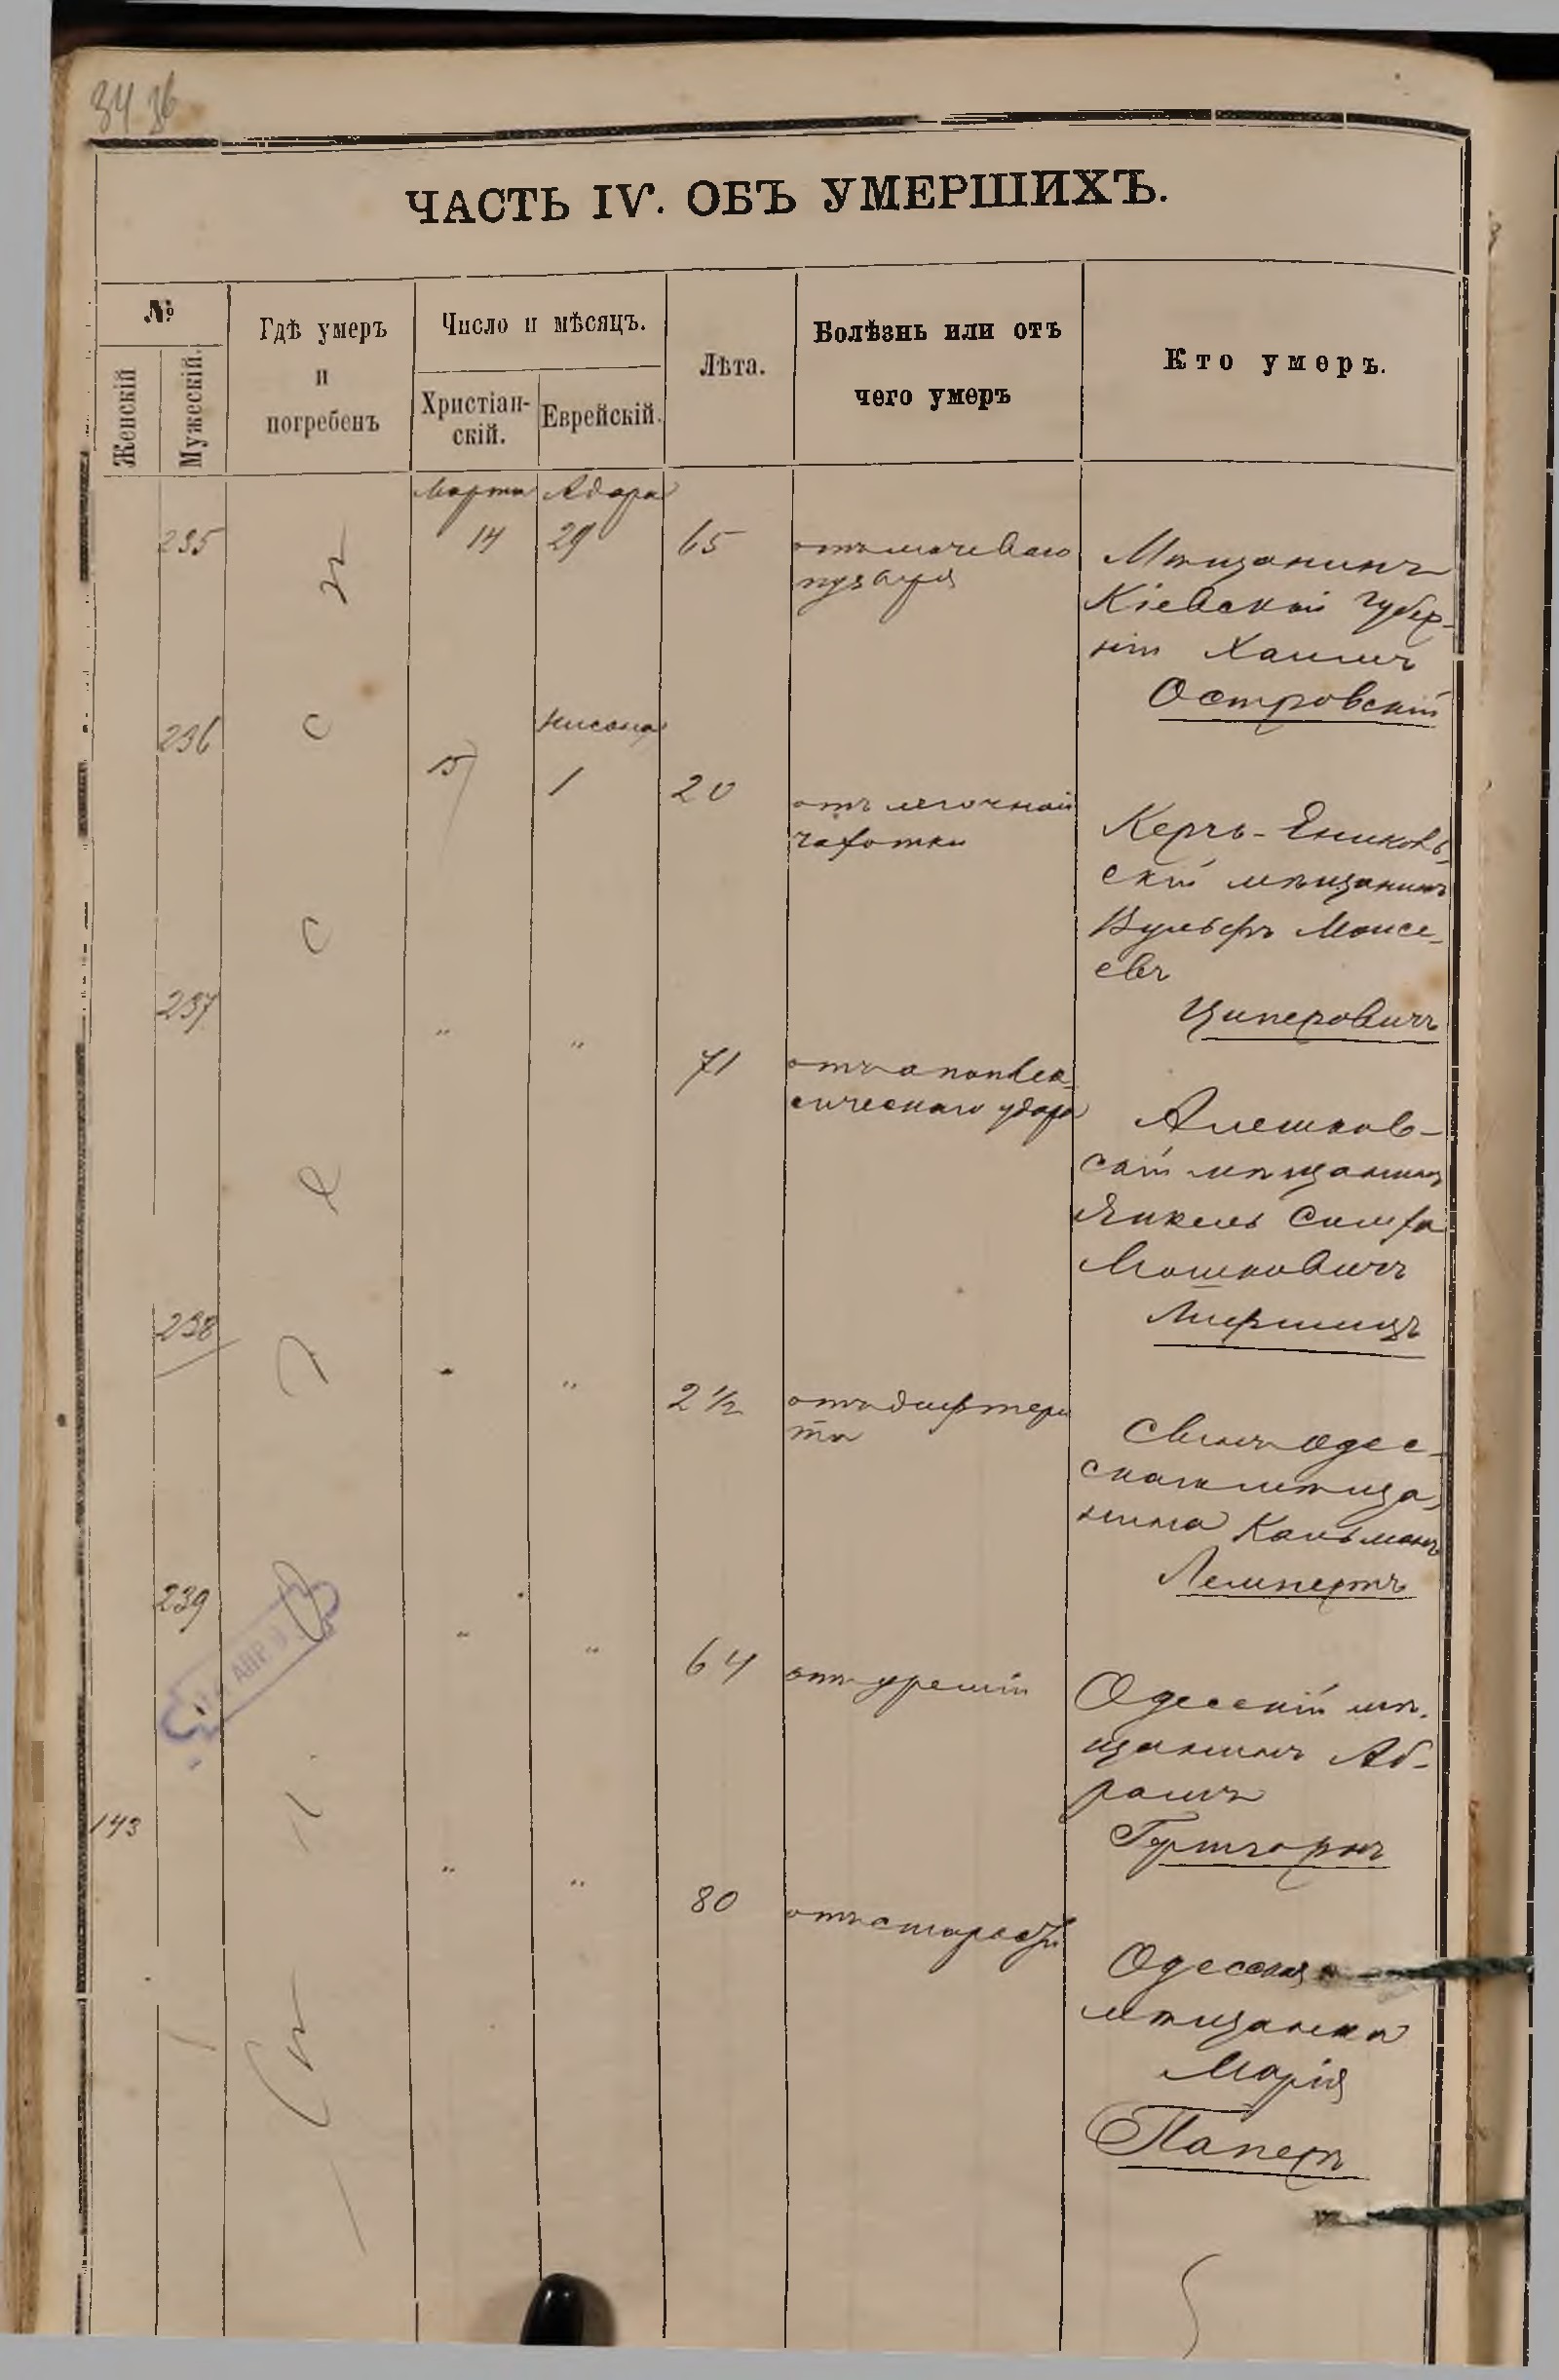 34 36
ЧАСТЬ IV. ОБЪ УМЕРШИХЪ.
№
Женскій
Мужескій.
Гдѣ умеръ
и
погребенъ
Число и мѣсяцъ.
Христіан-
скій.
Еврейскій.
Лѣта.
Болѣзнь или отъ
чего умеръ
Кто умеръ.
Марта Адара
235 14 29 65 отъ мочеваго
пузыря
Мѣщанинъ
Кіевской губер-
ніи Хаимъ
Островскій
236 15 Нисана 1 20 отъ легочной
чахотки
Керчь-Ениколь-
скій мѣщанинъ
Вульфъ Моисе-
евъ
Циперовичъ
237 " " 71 отъ апоплек-
сическаго удара
Алешков-
скій мѣщанинъ
Янкель Симха
Мошковичъ
Лифшицъ
238 " " 2 ½ отъ дифтери
та
Сынъ Одес-
скаго мѣща-
нина Кальманъ
Лемпертъ
239 " " 64 отъ уреміи
Одесскій мѣ-
щанинъ Аб-
рамъ
143 " " 80 отъ старости
Одесская
мѣщанка
Марія
АПР